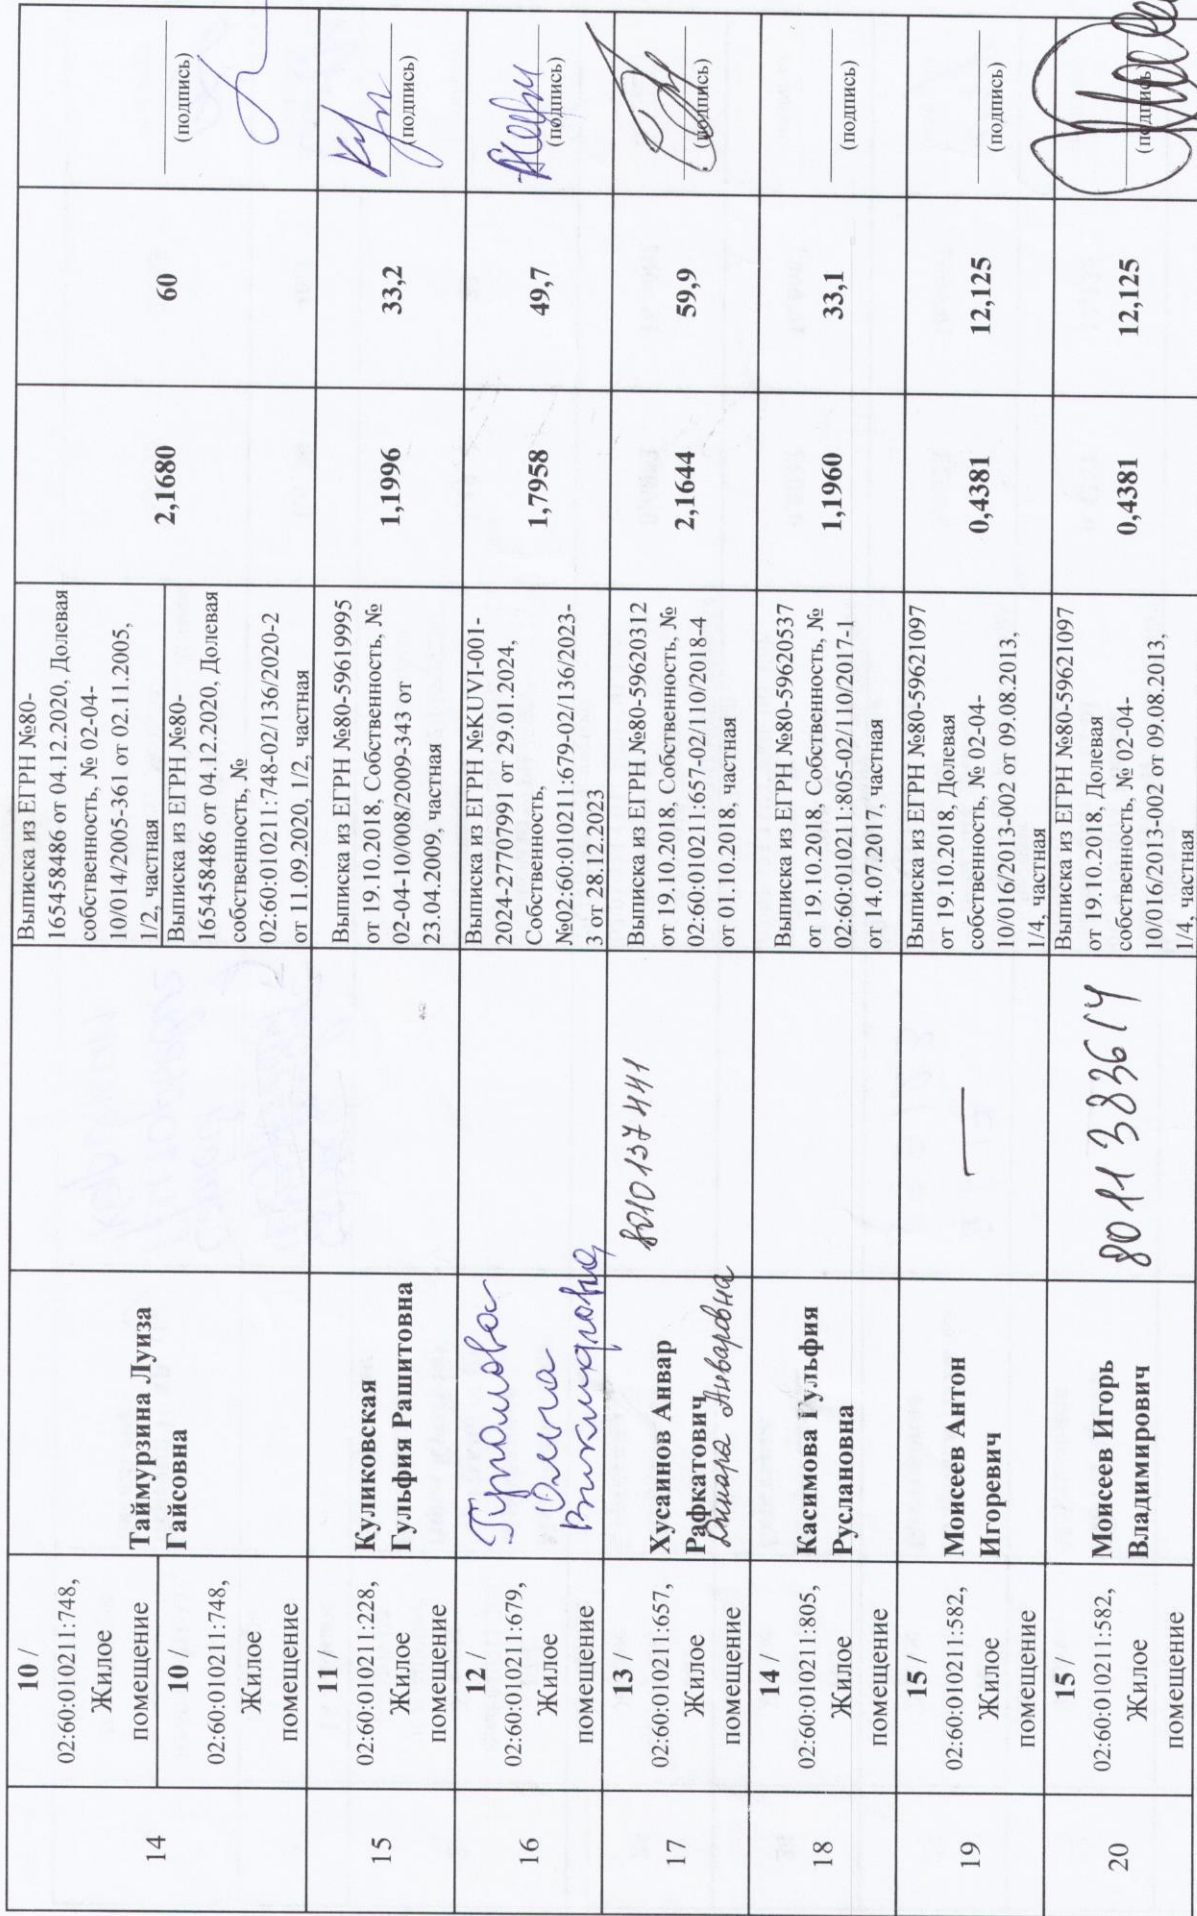 14
10 /
02:60:010211:748,
Жилое
помещение
10 /
02:60:010211:748,
Жилое
помещение
Таймурзина Луиза
Гайсовна
Выписка из ЕГРН №80-
165458486 от 04.12.2020, Долевая
собственность, № 02-04-
10/014/2005-361 от 02.11.2005,
1/2, частная
Выписка из ЕГРН №80-
165458486 от 04.12.2020, Долевая
собственность, №
02:60:010211:748-02/136/2020-2
от 11.09.2020, 1/2, частная
2,1680
60
(подпись)
15
11 /
02:60:010211:228,
Жилое
помещение
Куликовская
Гульфия Рашитовна
Выписка из ЕГРН №80-59619995
от 19.10.2018, Собственность, №
02-04-10/008/2009-343 от
23.04.2009, частная
1,1996
33,2
(подпись)
16
12 /
02:60:010211:679,
Жилое
помещение
Ольга
Выписка из ЕГРН №KUVI-001-
2024-27707991 от 29.01.2024,
Собственность,
№02:60:010211:679-02/136/2023-
3 от 28.12.2023
1,7958
49,7
(подпись)
17
13 /
02:60:010211:657,
Жилое
помещение
Хусаинов Анвар
Рафкатович
Динара Анваровна
8010137441
Выписка из ЕГРН №80-59620312
от 19.10.2018, Собственность, №
02:60:010211:657-02/110/2018-4
от 01.10.2018, частная
2,1644
59,9
(подпись)
18
14 /
02:60:010211:805,
Жилое
помещение
Касимова Гульфия
Руслановна
Выписка из ЕГРН №80-59620537
от 19.10.2018, Собственность, №
02:60:010211:805-02/110/2017-1
от 14.07.2017, частная
1,1960
33,1
(подпись)
19
15 /
02:60:010211:582,
Жилое
помещение
Моисеев Антон
Игоревич
—
Выписка из ЕГРН №80-59621097
от 19.10.2018, Долевая
собственность, № 02-04-
10/016/2013-002 от 09.08.2013,
1/4, частная
0,4381
12,125
(подпись)
20
15 /
02:60:010211:582,
Жилое
помещение
Моисеев Игорь
Владимирович
8011 383614
Выписка из ЕГРН №80-59621097
от 19.10.2018, Долевая
собственность, № 02-04-
10/016/2013-002 от 09.08.2013,
1/4, частная
0,4381
12,125
(подпись)